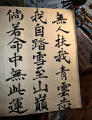 無人扶我青雲志
我自踏雪至山巔
倘若命中無此運